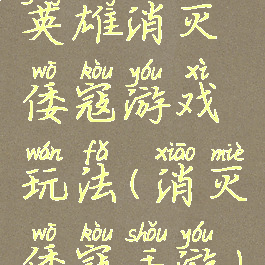 英雄消灭
wō kòu yóu xì
倭寇游戏
wán fǎ xiāo miè
玩法(消灭
wō kòu shǒu yóu
倭寇手游)